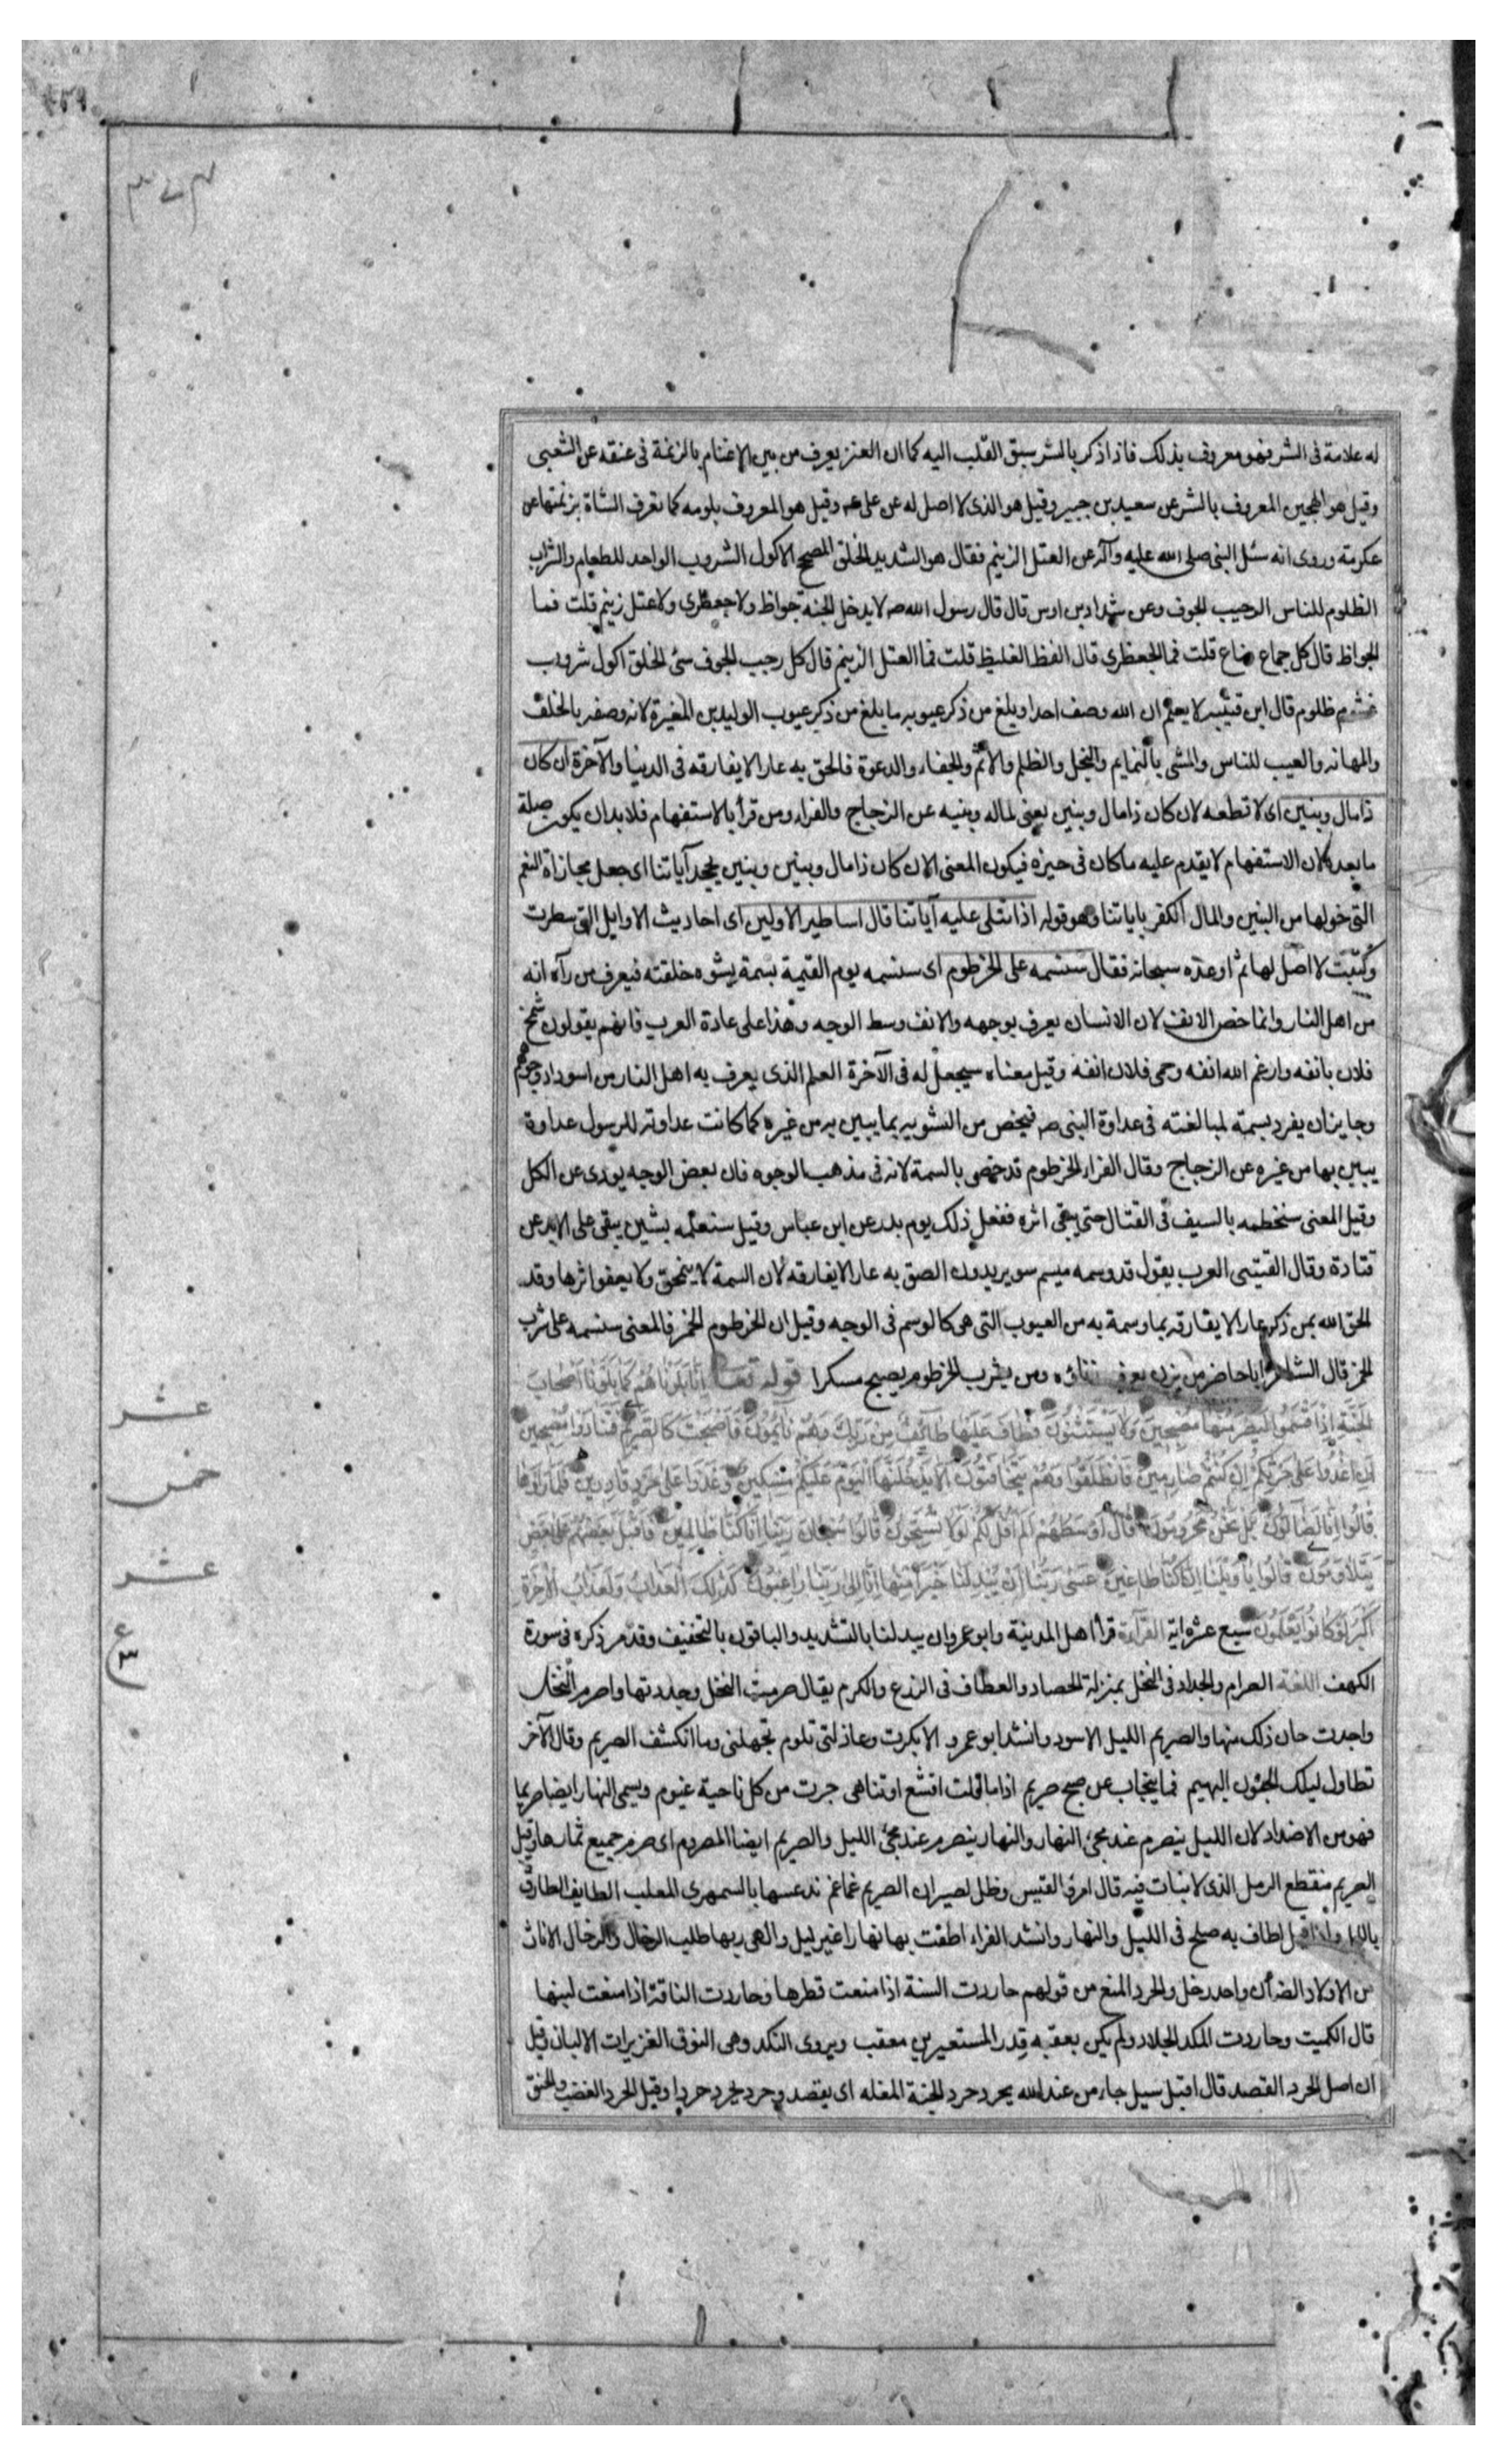 له علامة فى الشر فهو معروف بذلك فاذا ذكر بالشر سبق القلب اليه كما ان العنز يعرف من بين الاغنام بالزنمة فى عنقه عن الشعبى
وقيل هو الهجين المعروف بالشر عن سعيد بن جبير وقيل هو الذى لا اصل له عن على عم وقيل هو المعروف بلومه كما تعرف الشاة بزنمتها عن
عكرمة وروى انه سئل النبى صلى الله عليه وآله عن العتل الزنيم فقال هو الشديد الخلق المصحح الاكول الشروب الواجد للطعام والشراب
الظلوم للناس الرحيب الجوف وعن شداد بن اوس قال قال رسول الله ص لا يدخل الجنة جواظ ولا جعظرى ولا عتل زنيم قلت فما
الجواظ قال كل جماع مناع قلت فما الجعظرى قال الفظ الغليظ قلت فما العتل الزنيم قال كل رحيب الجوف سئ الخلق اكول شروب
غشوم ظلوم قال ابن قتيبه لا يعلم ان الله وصف احدا وبلغ من ذكر عيوبه ما بلغ من ذكر عيوب الوليد بن المغيرة لانه وصفه بالخلف
والمهانه والعيب للناس والمشى بالنمايم والبخل والظلم والاثم والجفاء والدعوة فالحق به عارا لا يفارقه فى الدنيا والآخرة ان كان
ذا مال وبنين اى لا تطعه لان كان ذا مال وبنين يعنى لماله وبنيه عن الزجاج والفراء ومن قرأ بالاستفهام فلا بد ان يكون صلة
ما بعده لان الاستفهام لا يقدم عليه ما كان فى حيزه فيكون المعنى الان كان ذا مال وبنين وبنين يجحد آياتنا اى جعل مجازاة النعم
التى خولها من البنين والمال الكفر باياتنا وهو قوله اذا تتلى عليه آياتنا قال اساطير الاولين اى احاديث الاوايل التى سطرت
وكتبت لا اصل لها ثم اوعده سبحانه فقال سنسمه على الخرطوم اى سنسمه يوم القيمة بسمة يشوه خلقته فيعرف من رآه انه
من اهل النار وانما خص الانف لان الانسان يعرف بوجهه والانف وسط الوجه وهذا على عادة العرب فانهم يقولون شمخ
فلان بانفه وارغم الله انفه وحمى فلان انفه وقيل معناه سيجعل له فى الآخرة العلم الذى يعرف به اهل النار من اسوداد وجوههم
وجايز ان يفرد بسمة لمبالغته فى عداوة النبى ص فيخص من التشويه بما يبين به من غيره كما كانت عداوته للرسول عداوة
يبين بها من غيره عن الزجاج وقال الفراء الخرطوم قد خص بالسمة لانه فى مذهب الوجوه فان بعض الوجه يودى عن الكل
وقيل المعنى سنخطمه بالسيف فى القتال حتى يبقى اثره ففعل ذلك يوم بدر عن ابن عباس وقيل سنعلمه بشين يبقى على الابد عن
قتادة وقال القتيبى العرب يقول قد وسمه ميسم سو يريدون الصق به عارا لا يفارقه لان السمة لا ينمحق ولا يعفو اثرها وقد
الحق الله بمن ذكر عارا لا يفارقه بما وسمة به من العيوب التى هى كالوسم فى الوجه وقيل ان الخرطوم الخمر فالمعنى سنسمه على شرب
الخمر قال الشاعر ايا حاضر من يزن يعرف زناؤه ومن يشرب الخرطوم يصبح مسكرا قوله تعالى انا بلوناهم كما بلونا اصحاب
الجنة اذ اقسموا ليصرمنها مصبحين ولا يستثنون فطاف عليها طائف من ربك وهم نايمون فاصبحت كالصريم فتنادوا مصبحين
ان اغدوا على حرثكم ان كنتم صارمين فانطلقوا وهم يتخافتون ان لا يدخلنها اليوم عليكم مسكين وغدوا على حرد قادرين فلما راوها
قالوا انا لضالون بل نحن محرومون قال اوسطهم الم اقل لكم لولا تسبحون قالوا سبحان ربنا انا كنا ظالمين فاقبل بعضهم على بعض
يتلاومون قالوا يا ويلنا انا كنا طاغين عسى ربنا ان يبدلنا خيرا منها انا الى ربنا راغبون كذلك العذاب ولعذاب الآخرة
اكبر لو كانوا يعلمون سبع عشر اية القراءة قرأ اهل المدينة وابو عمرو ان يبدلنا بالتشديد والباقون بالتخفيف وقد مر ذكره فى سورة
الكهف اللغة الصرام والجداد فى النخل بمنزلة الحصاد والقطاف فى الزرع والكرم يقال صرمت النخل وجددتها واصرم النخل
واجدت حان ذلك منها والصريم الليل الاسود وانشد ابو عمرو الا بكرت وعاذلتى تلوم تجهلنى وما انكشف الصريم وقال الآخر
تطاول ليلك الجون البهيم فما ينجاب عن صبح صريم اذا ما قلت اقشع او تناهى جرت من كل ناحية غيوم ويسمى النهار ايضا صريما
فهو من الاضداد لان الليل ينصرم عند مجئ النهار والنهار ينصرم عند مجئ الليل والصريم ايضا المصروم اى صرم جميع ثمارها وقيل
الصريم منقطع الرمل الذى لا نبات فيه قال امرؤ القيس وظل لصيران الصريم غماغم تدعسها بالسمهرى المعلب الطايف الطارق
بالليل واذا قيل اطاف به صلح فى الليل والنهار وانشد الفراء اطفت بها نهارا غير ليل والهى ربها طلب الرخال والرخال الاناث
من الاولاد الضان واحد رخل والحرد المنع من قولهم حاردت السنة اذا منعت قطرها وحاردت الناقة اذا منعت لبنها
قال الكميت وحاردت المكد الجلاد ولم يكن بعقبه قدر المستعيرين معقب ويروى النكد وهى النوق الغزيرات الالبان وقيل
ان اصل الحرد القصد قال اقبل سيل جاء من عند الله يحرد حرد الجنة المغله اى يقصد وحرد يحرد حردا وقيل الحرد الغضب والحنق
عشر
خمس
عشر
ع
٣